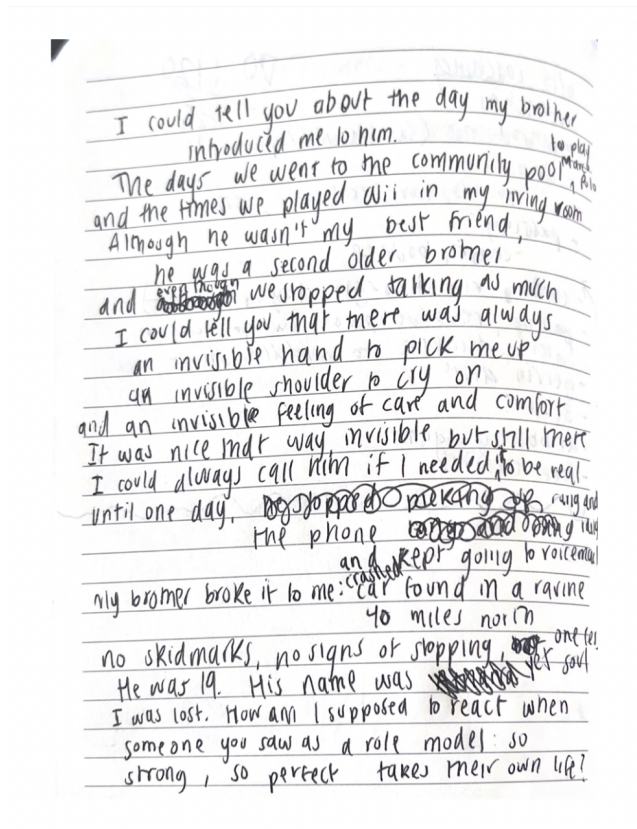 I could tell you about the day my brother
introduced me to him.
The days we went to the community pool to play Marco Polo
and the times we played Wii in my living room
Although he wasn't my best friend,
he was a second older brother
and even though we stopped talking as much
I could tell you that there was always
an invisible hand to pick me up
an invisible shoulder to cry on
and an invisible feeling of care and comfort
It was nice that way invisible but still there
I could always call him if I needed it to be real
until one day,
the phone rang and rang
and kept going to voicemail
My brother broke it to me: crashed car found in a ravine
40 miles north
no skidmarks, no signs of stopping,
He was 19. His name was
I was lost. How am I supposed to react when
someone you saw as a role model: so
strong, so perfect takes their own life?